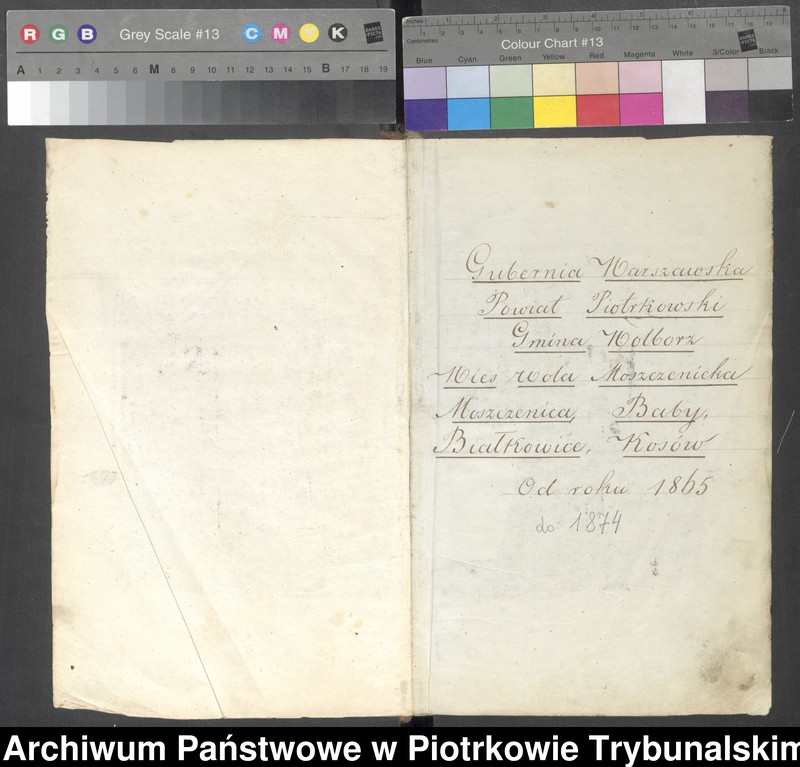 R G B Grey Scale #13 C M Y K
A 1 2 3 4 5 6 M 8 9 10 11 12 13 14 15 B 17 18 19
Inches
Centimetres
Colour Chart #13
Blue Cyan Green Yellow Red Magenta White 3/Color Black
Gubernia Warszawska
Powiat Piotrkowski
Gmina Wolborz
Wies Wola Moszczenicka
Moszczenica, Baby,
Białkowice, Kosów
Od roku 1865
do 1874
Archiwum Państwowe w Piotrkowie Trybunalskim